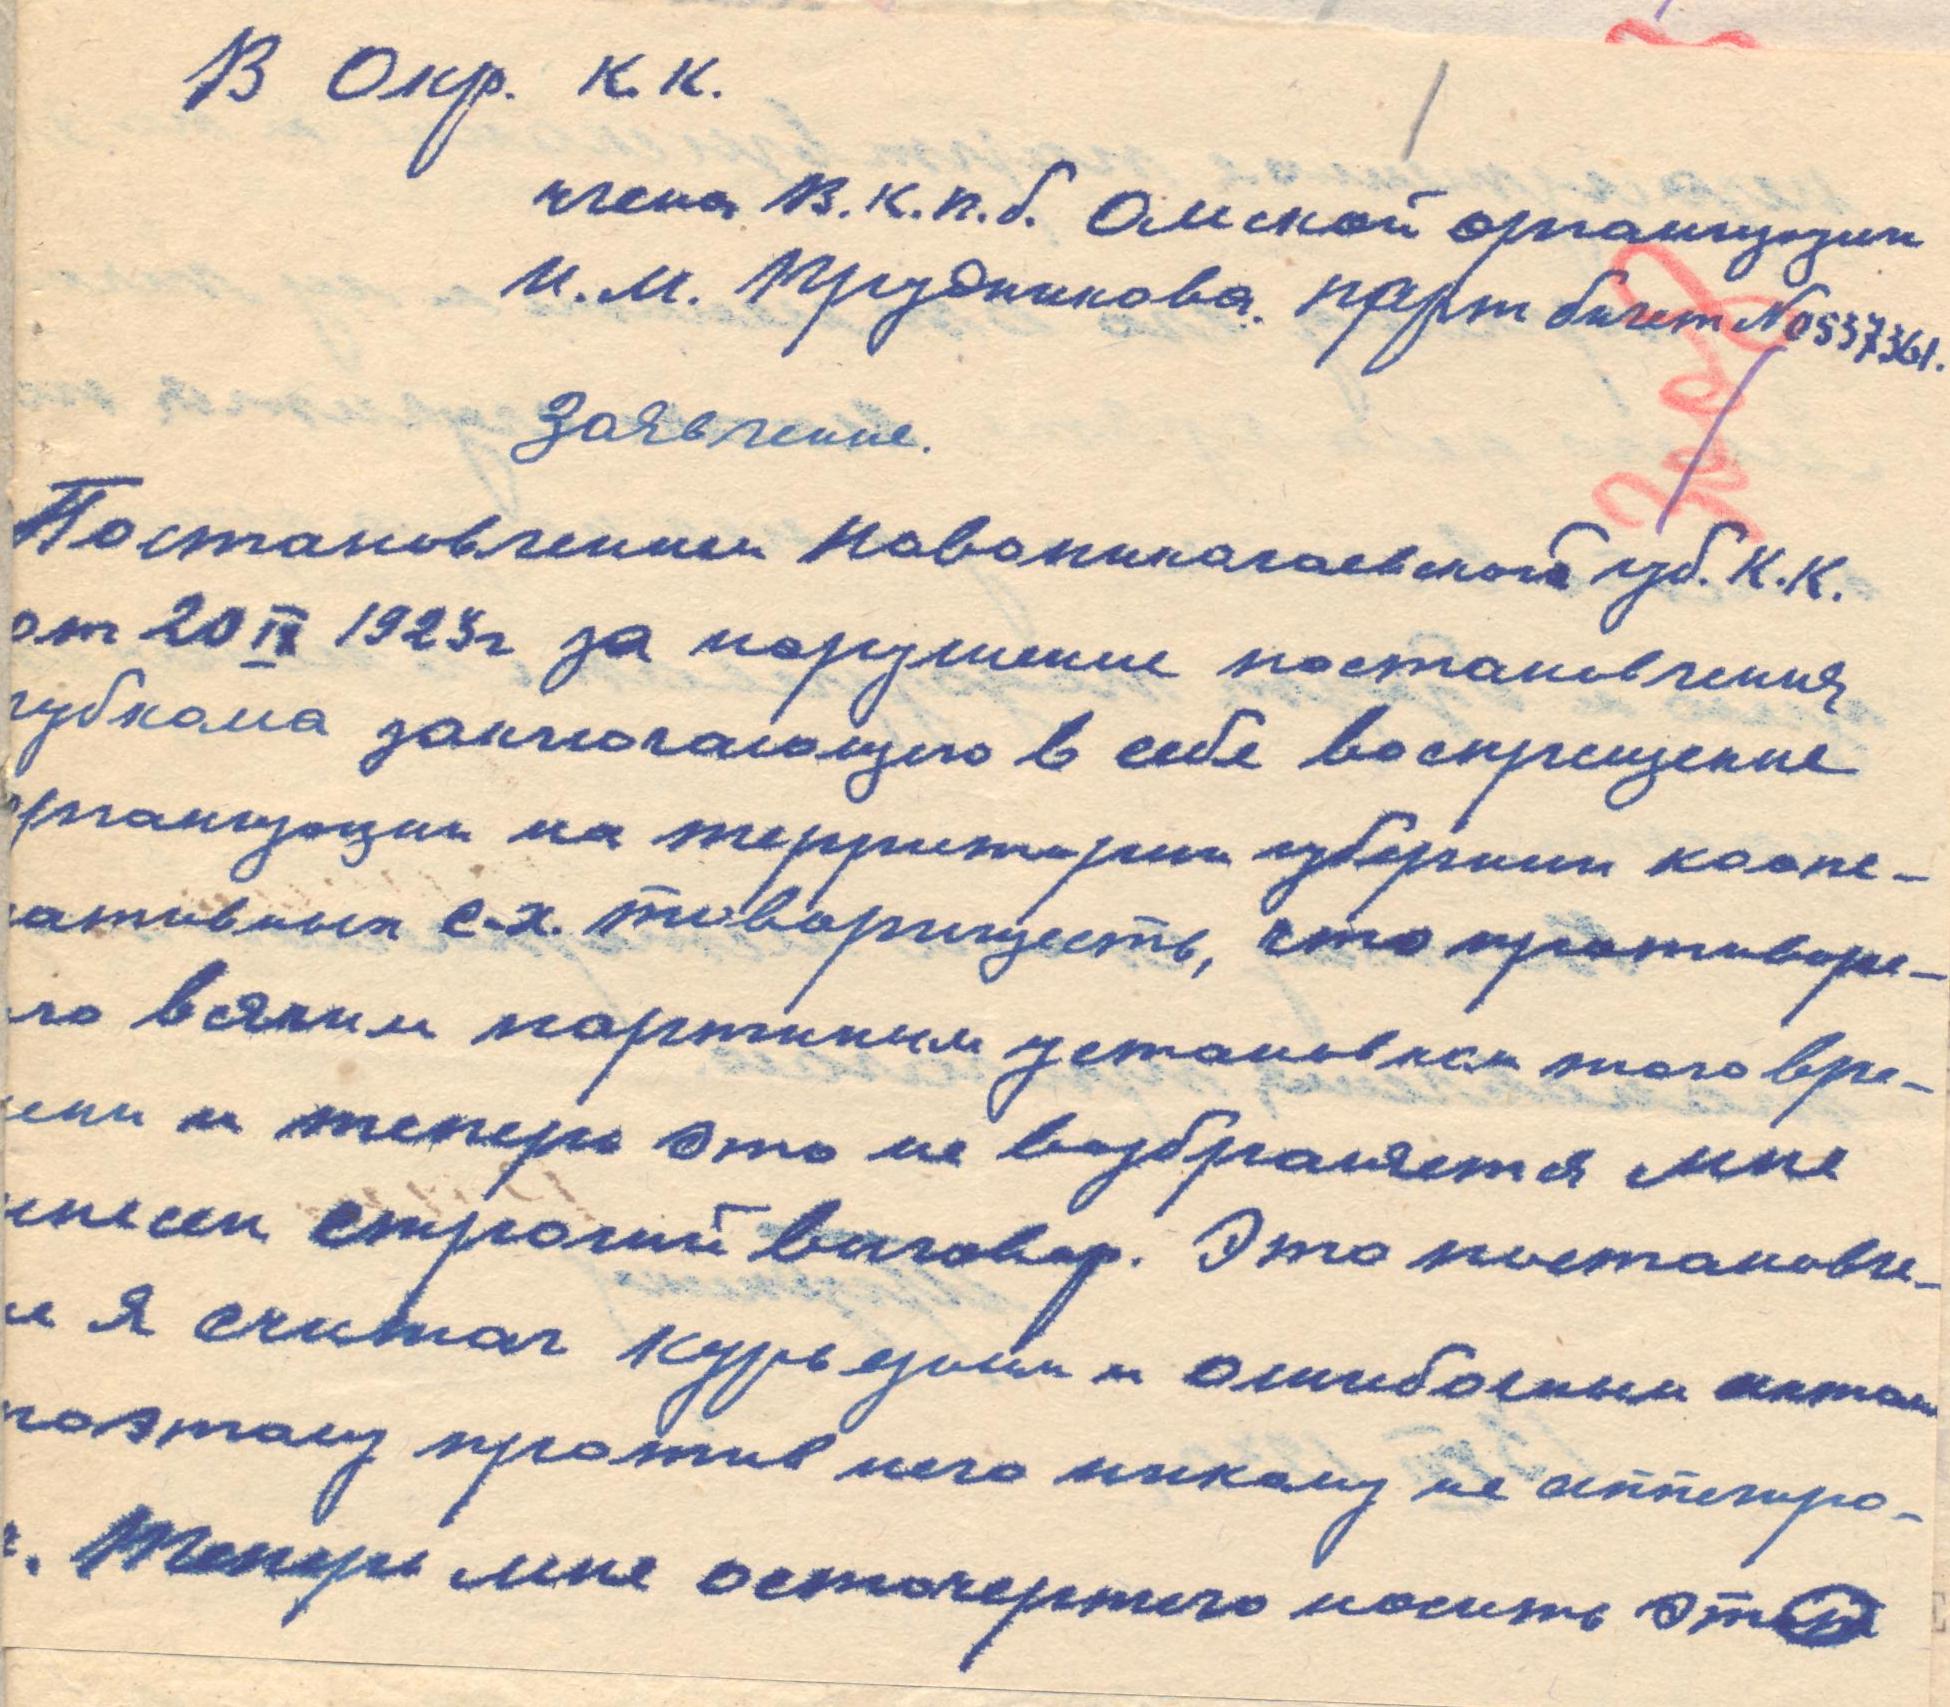 В Окр. К.К.
члена В.К.П.б. Омской организации
И.М. Трудникова. парт билет № 0537361.
Заявление.
Постановлением Новониколаевской губ. К.К.
от 20 IX 1923г за нарушение постановления
губкома заключающего в себе воспрещение
организации на территории губернии коопе-
ративных с-х. товариществ, что противоре-
чило всяким партийным установкам того вре-
мени и теперь это не возбраняется мне
вынесен строгий выговор. Это постановле-
ние я считал курьезным и ошибочным актом
поэтому против него никому не аппелиро-
вал. Теперь мне осточертело носить этот